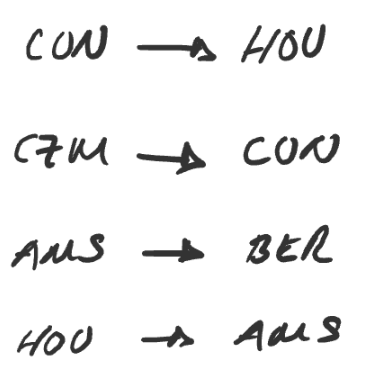 CON → HOU
CZM → CON
AMS → BER
HOU → AMS